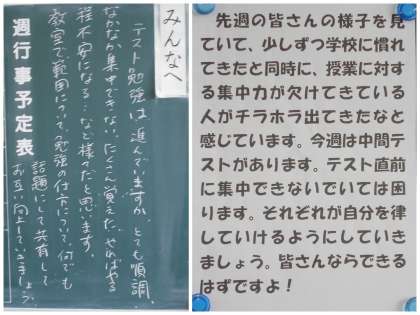 みんなへ
テストの勉強は進んでいますか、とても順調、
なかなか集中できない、たくさん覚えた、やればやる
程不安になる…など様々だと思います。
教室で範囲について、勉強の仕方について、何でも
話題にして共有して
お互い向上していきましょう。
週行事予定表
先週の皆さんの様子を見
ていて、少しずつ学校に慣れ
てきたと同時に、授業に対す
る集中力が欠けてきている
人がチラホラ出てきたなと
感じています。今週は中間テ
ストがあります。テスト直前
に集中できないでいては困
ります。それぞれが自分を律
していけるようにしていき
ましょう。皆さんならできる
はずですよ！